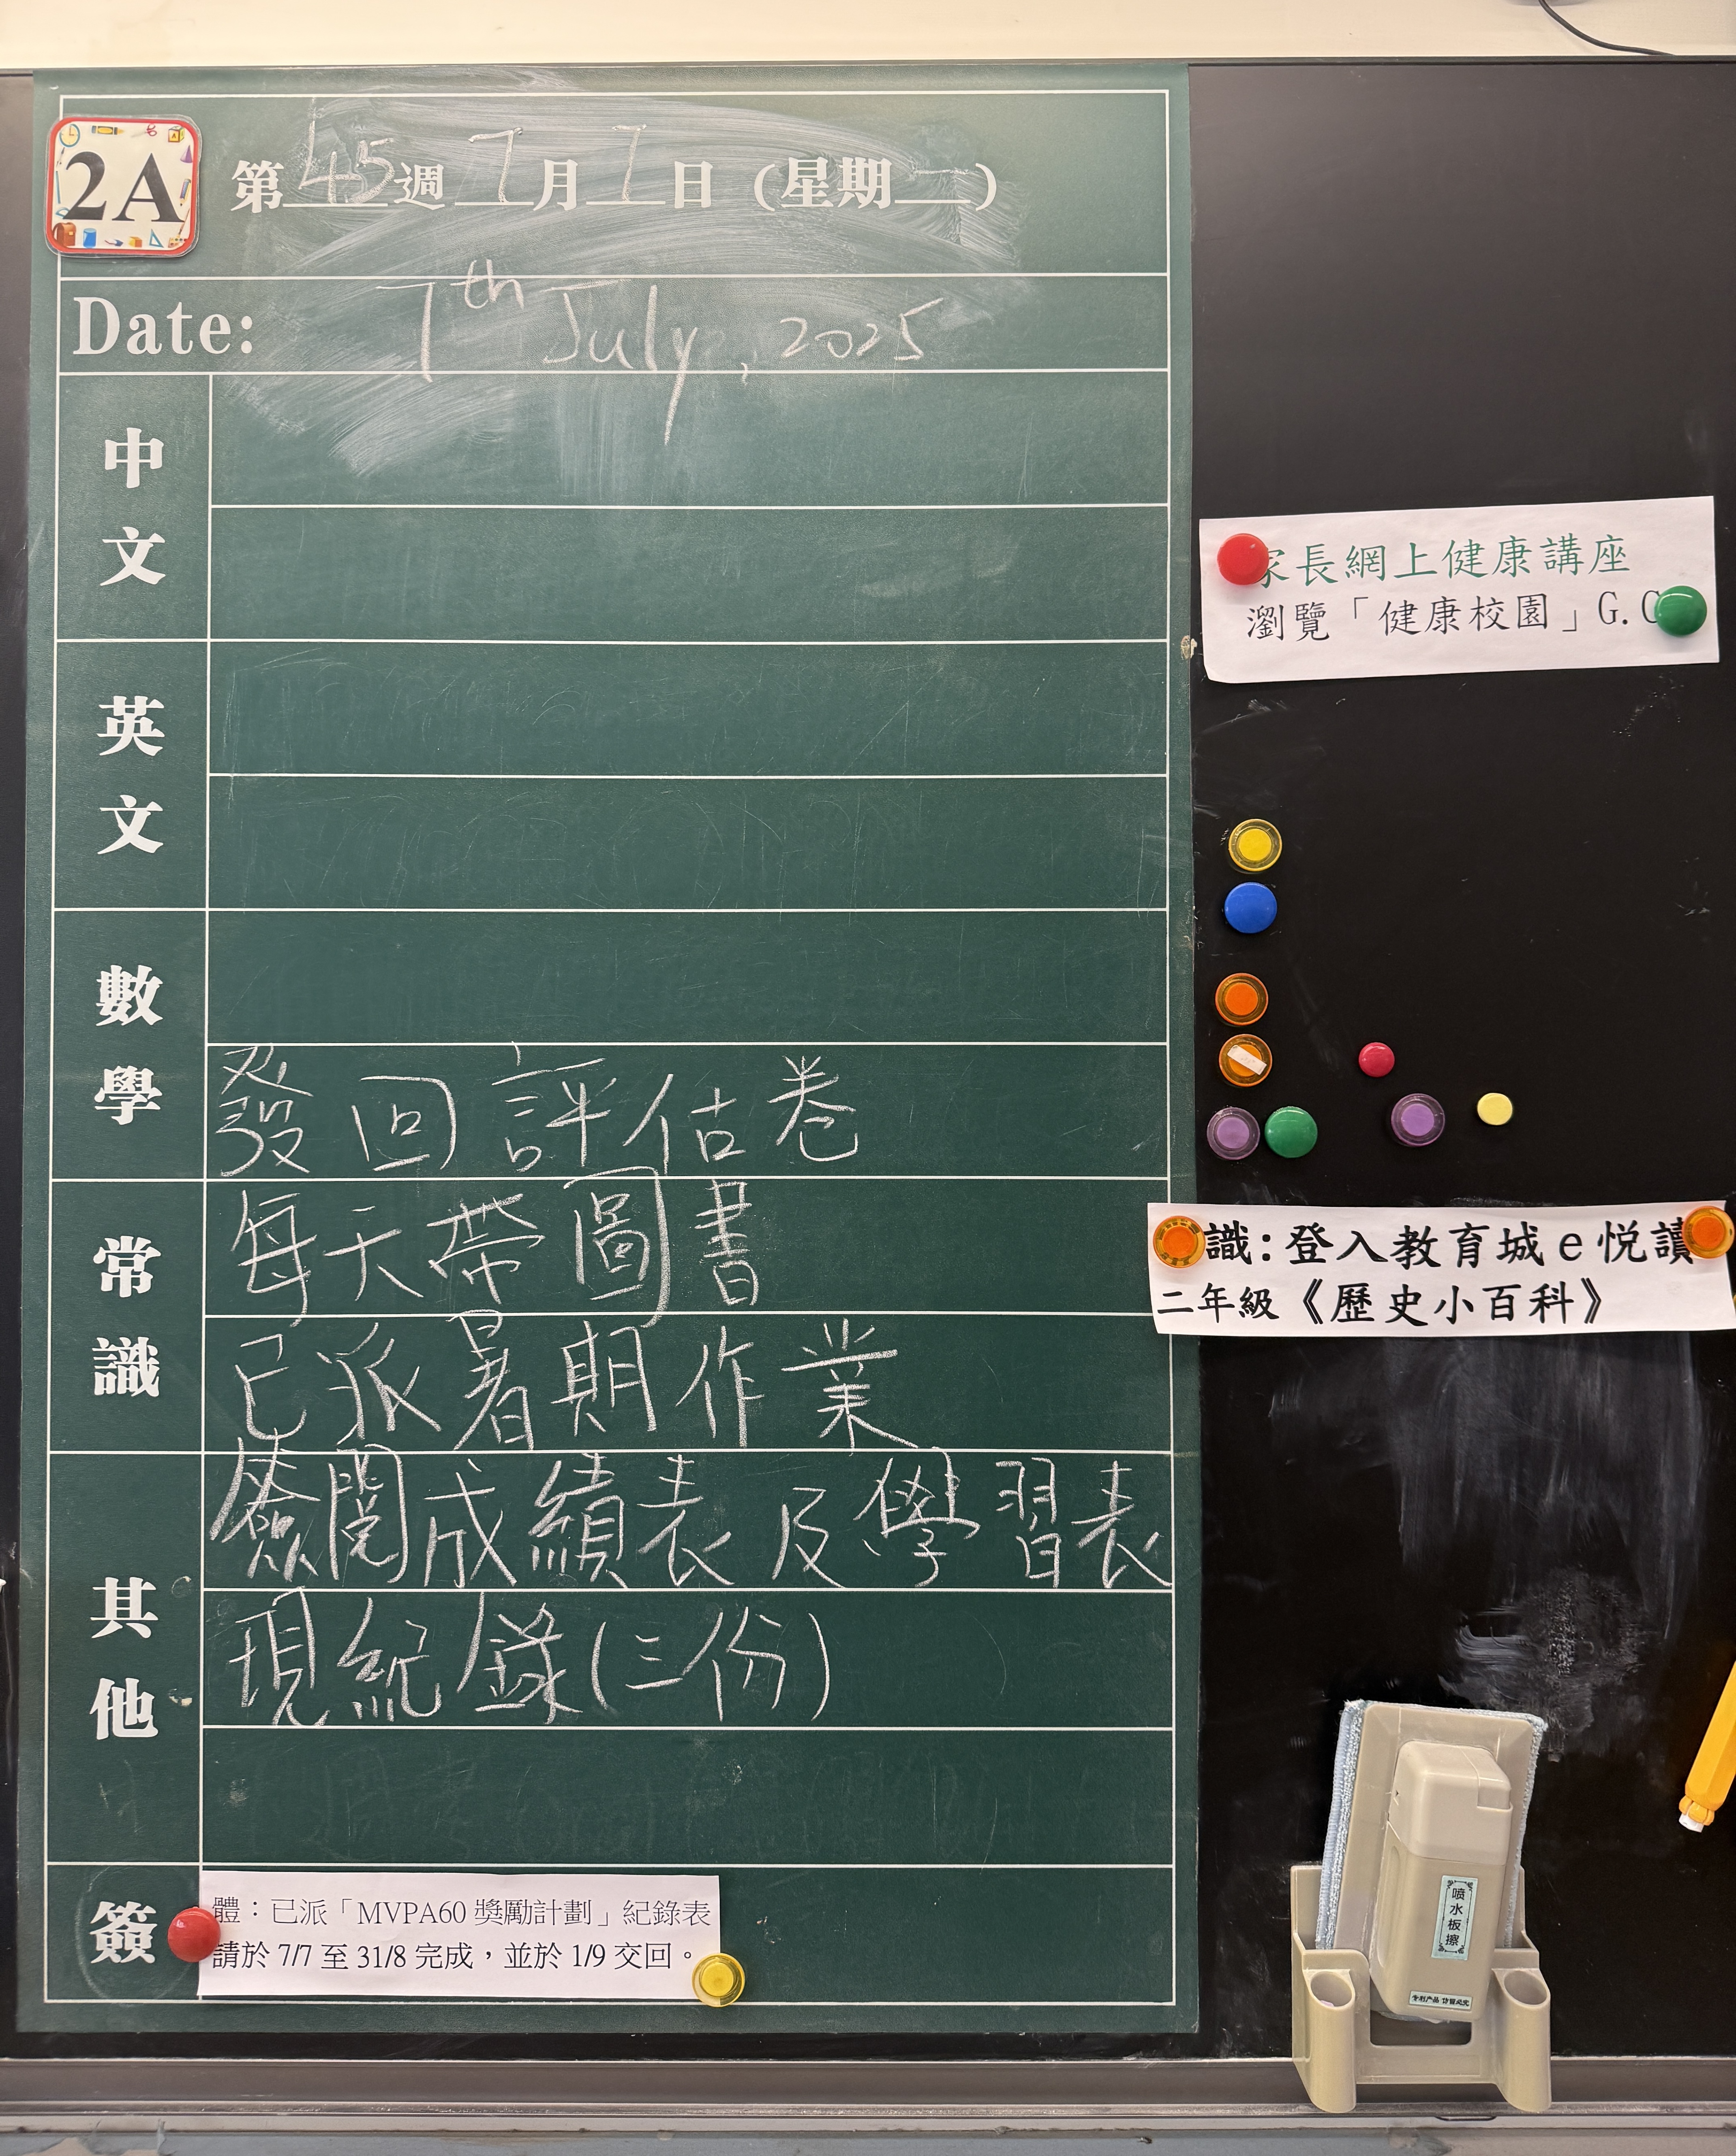 2A
第45週 7月7日 (星期一)
Date: 7th July, 2025
中文
英文
數學
發回評估卷
常識
每天帶圖書
已派暑期作業
其他
簽閱成績表及學習表
現紀錄(三份)
簽
體：已派「MVPA60獎勵計劃」紀錄表
請於 7/7 至 31/8 完成，並於 1/9 交回。
家長網上健康講座
瀏覽「健康校園」G.C
識:登入教育城 e 悅讀
二年級《歷史小百科》
喷水板擦
专利产品 仿冒必究